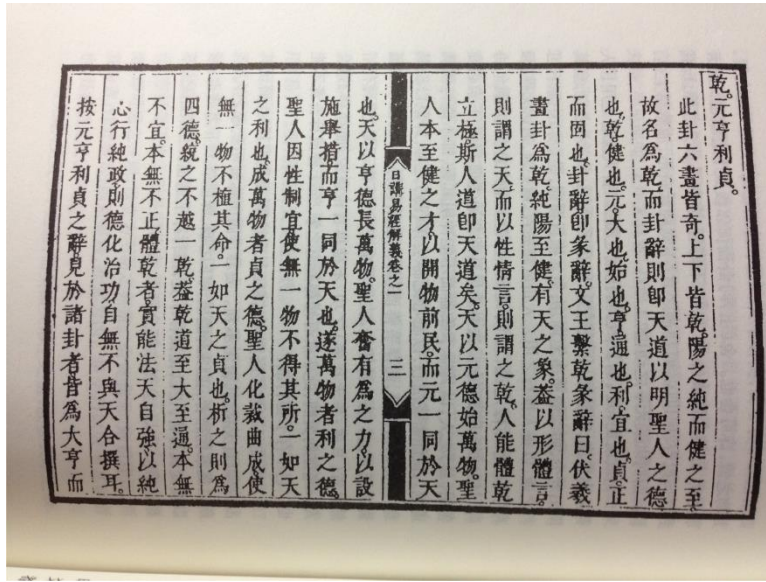 乾。元亨利貞。
此卦六畫皆奇。上下皆乾。陽之純而健之至。
故名爲乾。而卦辭則卽天道以明聖人之德
也。乾健也。元。大也。始也。亨。通也。利。宜也。貞。正
而固也。卦辭卽彖辭。文王繫乾彖辭曰。伏羲
畫卦爲乾。純陽至健。有天之象。蓋以形體言。
則謂之天。而以性情言。則謂之乾。人能體乾
立極。斯人道卽天道矣。天以元德始萬物。聖
人本至健之才。以開物前民。而元一同於天
日講易經解義卷之一
三
也。天以亨德長萬物。聖人奮有爲之力。以設
施舉措。而亨一同於天也。遂萬物者利之德。
聖人因性制宜。使無一物不得其所。一如天
之利也。成萬物者貞之德。聖人化裁曲成。使
無一物不植其命。一如天之貞也。析之則爲
四德。統之不越一乾。蓋乾道至大至通。本無
不宜。本無不正。體乾者。實能法天自強。以純
心行純政。則德化治功。自無不與天合撰耳。
按元亨利貞之辭。見於諸卦者。皆爲大亨而